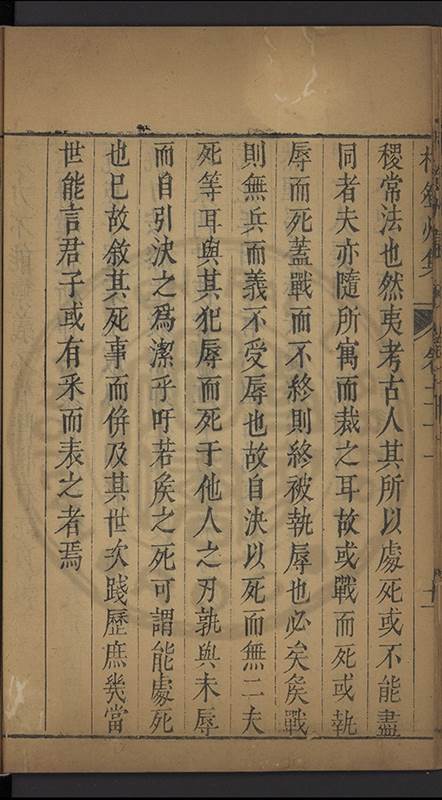 稷常法也然夷考古人其所以處死或不能盡
同者夫亦隨所寓而裁之耳故或戰而死或執
辱而死蓋戰而不終則終被執辱也必矣矦戰
則無兵而義不受辱也故自決以死而無二夫
死等耳與其犯辱而死于他人之刃孰與未辱
而自引決之為潔乎吁若矦之死可謂能處死
也已故敘其死事而併及其世次踐歷庶幾當
世能言君子或有采而表之者焉